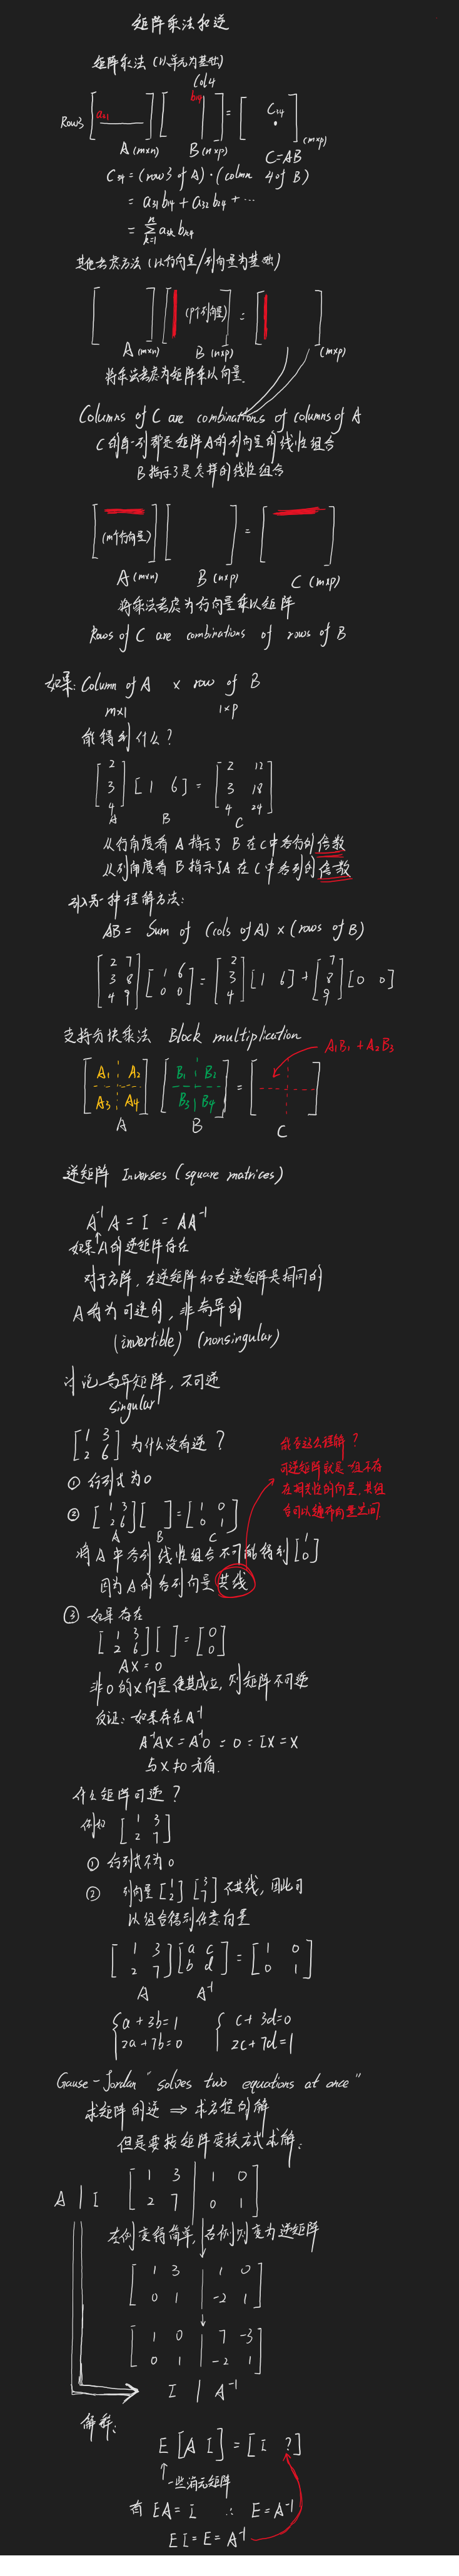 矩阵乘法和逆
矩阵乘法 (以单元为基础)
col4
Row3 [a31 ] [b14 ] = [C34 ]
A (m×n) B (n×p) C=AB (m×p)
C34 = (row 3 of A)·(column 4 of B)
= a31 b14 + a32 b24 + ⋯
= ∑ a3k bk4
k=1 n
其他考虑方法 (以行向量/列向量为基础)
[ ] [ (p个列向量) ] = [ ]
A (m×n) B (n×p) (m×p)
将乘法考虑为矩阵乘以向量.
Columns of C are combinations of columns of A
C的每一列都是矩阵A的列向量的线性组合
B指示了是怎样的线性组合
[ (m个行向量) ] [ ] = [ ]
A (m×n) B (n×p) C (m×p)
将乘法考虑为行向量乘以矩阵
Rows of C are combinations of rows of B
如果: Column of A × row of B
m×1 1×p
能得到什么?
[2 3 4] [1 6] = [2 12 3 18 4 24]
A B C
从行角度看 A指示了 B 在C中各行的倍数
从列角度看 B指示了A 在C中各列的倍数
引入另一种理解方法:
AB = Sum of (cols of A) × (rows of B)
[2 7 3 8 4 9] [1 6 0 0] = [2 3 4] [1 6] + [7 8 9] [0 0]
支持分块乘法 Block multiplication
A1B1 + A2B3
[A1 A2 A3 A4] [B1 B2 B3 B4] = [ ]
A B C
逆矩阵 Inverses (square matrices)
A⁻¹A = I = AA⁻¹
如果A的逆矩阵存在
对于方阵, 左逆矩阵和右逆矩阵是相同的
A称为可逆的, 非奇异的
(invertible) (nonsingular)
讨论奇异矩阵, 不可逆
singular
[1 3 2 6] 为什么没有逆?
能否这么理解?
可逆矩阵就是一组不存
在相关性的向量. 其组
合可以遍布向量空间
① 行列式为0
② [1 3 2 6] [ ] = [1 0 0 1]
A B C
将A中各列线性组合不可能得到 [1 0]
因为A的各列向量共线
③ 如果存在
[1 3 2 6] [ ] = [0 0]
AX = 0
非0的X向量使其成立, 则矩阵不可逆
反证: 如果存在A⁻¹
A⁻¹AX = A⁻¹0 = 0 = IX = X
与X≠0矛盾.
什么矩阵可逆?
例如 [1 3 2 7]
① 行列式不为0
② 列向量 [1 2] [3 7] 不共线, 因此可
以组合得到任意向量
[1 3 2 7] [a c b d] = [1 0 0 1]
A A⁻¹
{a + 3b = 1 {c + 3d = 0
2a + 7b = 0 2c + 7d = 1
Gause-Jordan "solves two equations at once"
求矩阵的逆 ⇒ 求方程的解
但是要按矩阵变换方式求解:
A | I [1 3 | 1 0
2 7 | 0 1]
左侧变得简单, 右侧则变为逆矩阵
[1 3 | 1 0
0 1 | -2 1]
[1 0 | 7 -3
0 1 | -2 1]
I | A⁻¹
解释:
E [A I] = [I ?]
一些消元矩阵
有 EA = I ∴ E = A⁻¹
EI = E = A⁻¹